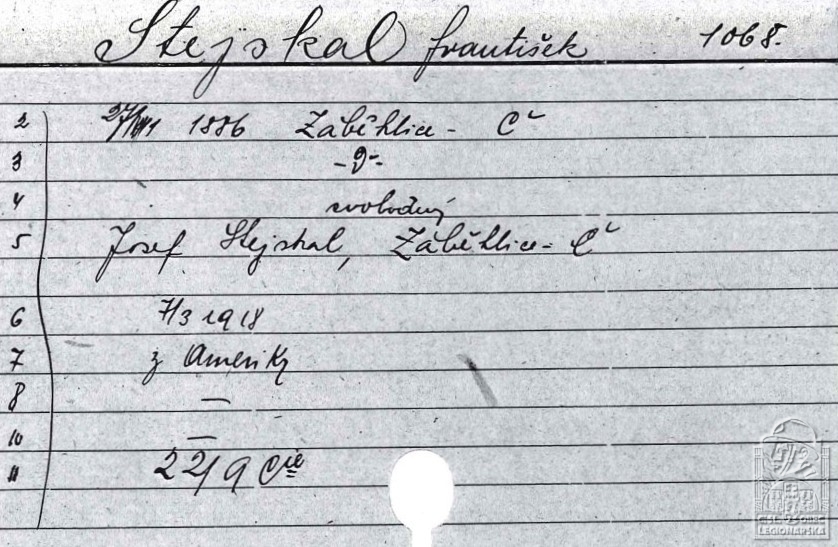 Stejskal František 1068.
2 1886 Záběhlice - Č
3 -"-
4 svobodný
5 Josef Stejskal, Záběhlice - Č
6 7/3 1918
7 z Ameriky
8 —
10 —
11 22/9 Cie
ČSL. OBEC
LEGIONÁŘSKÁ